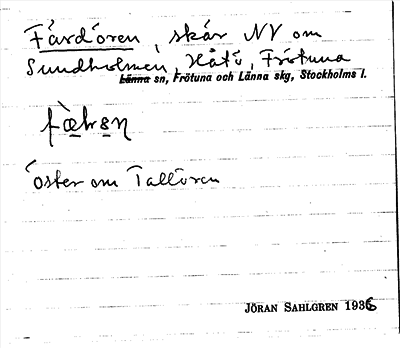 Färdören, skär NV om
Sundholmen, Håtö, Frötuna
Länna sn, Frötuna och Länna skg, Stockholms l.
öster om Tallören
JÖRAN SAHLGREN 1936